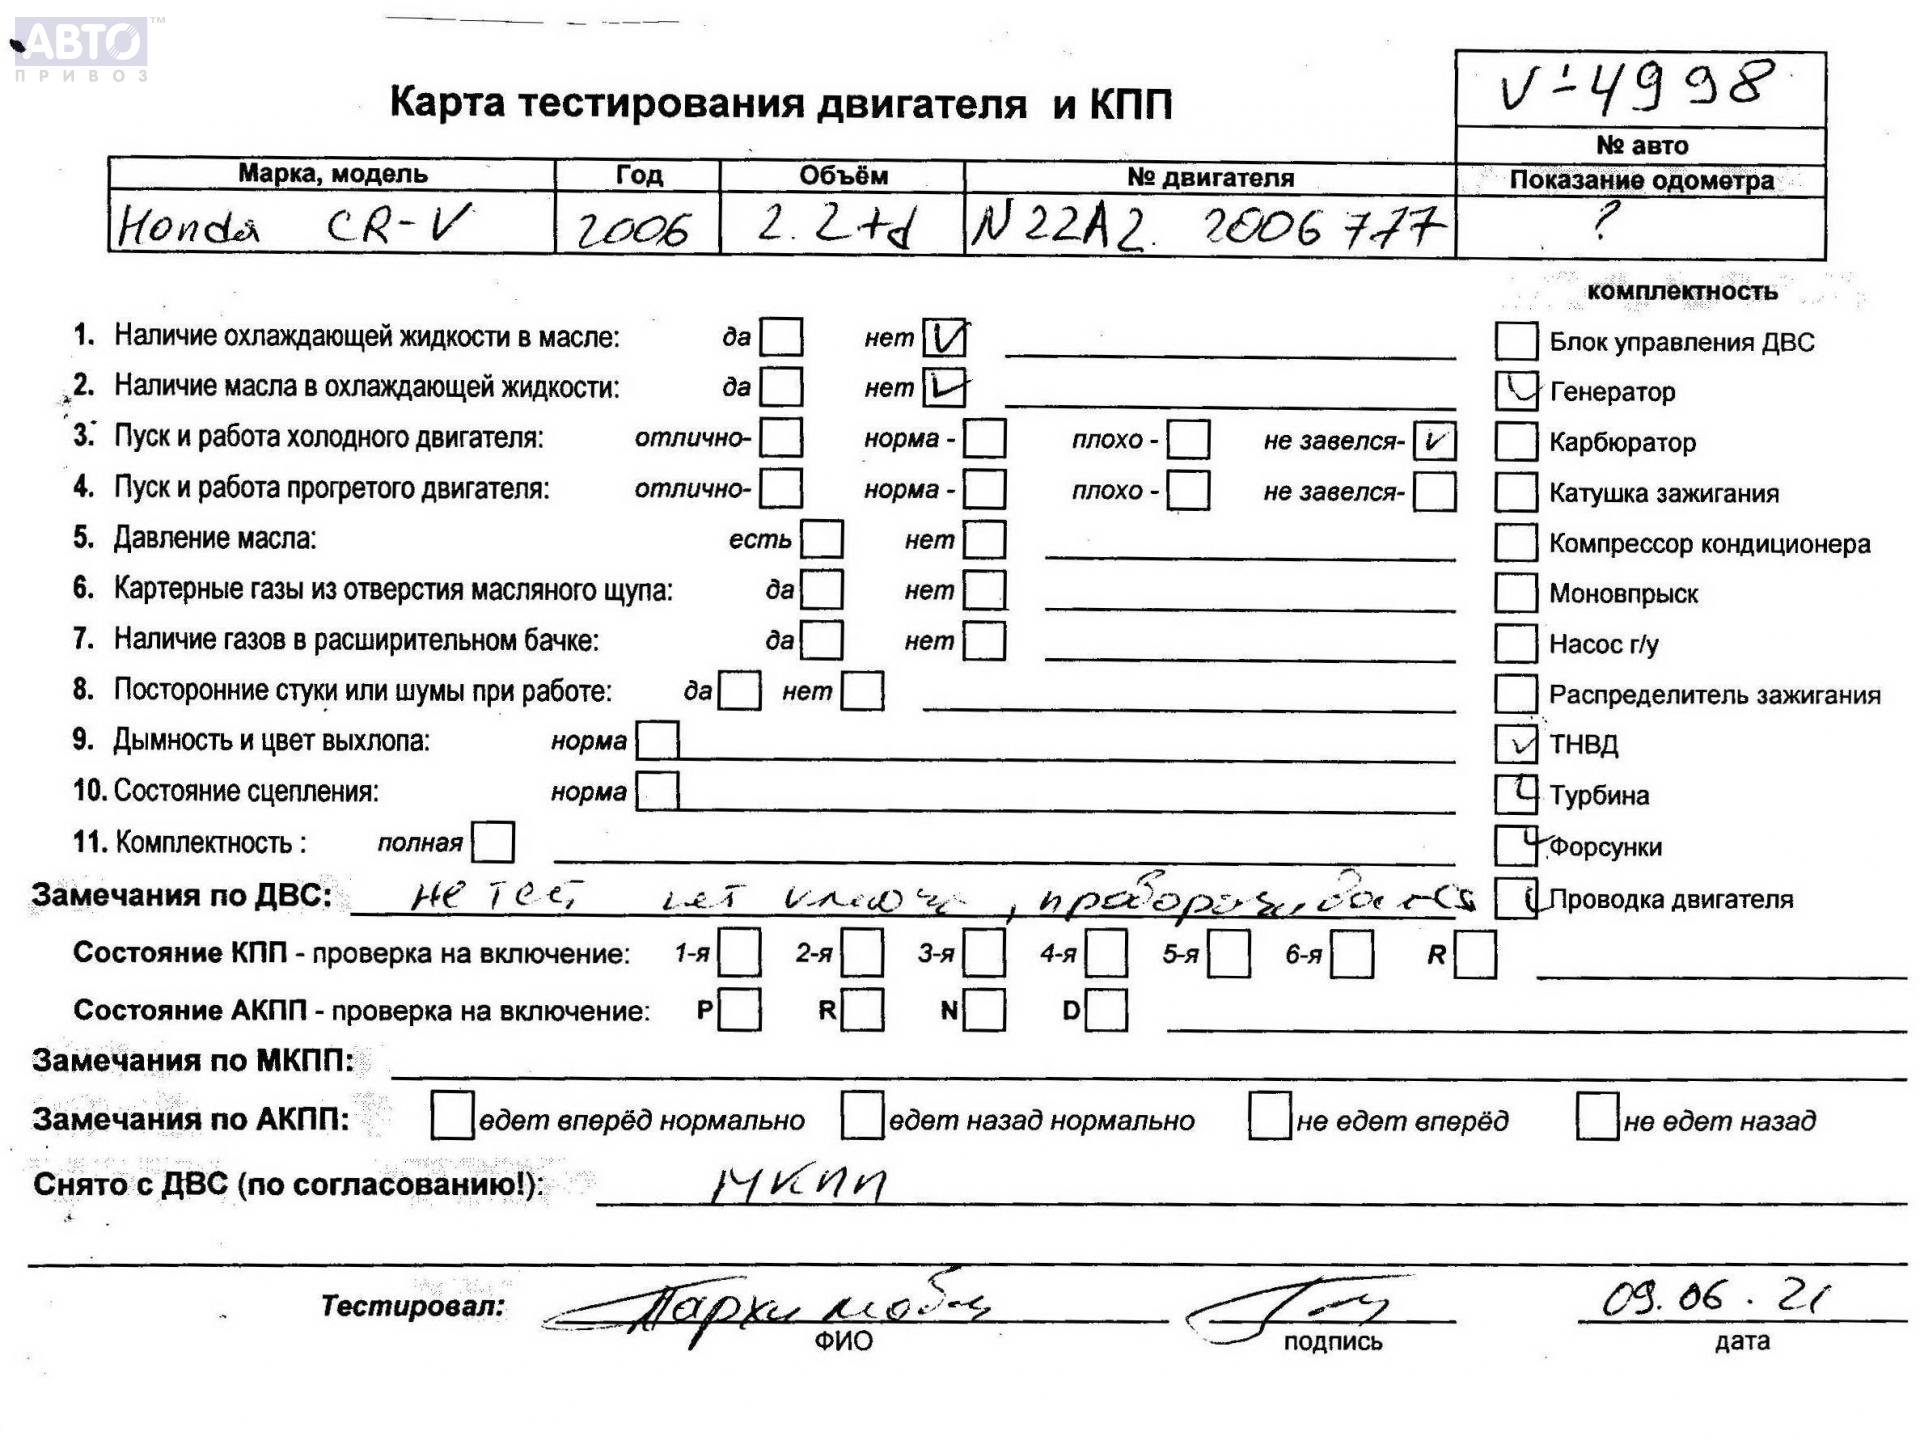 АВТО™
ПРИВОЗ
V-4998
Карта тестирования двигателя и КПП
№ авто
Марка, модель Год Объём № двигателя Показание одометра
Honda CR-V 2006 2.2td N22A2. 2006777 ?
комплектность
1. Наличие охлаждающей жидкости в масле: да нет V Блок управления ДВС
2. Наличие масла в охлаждающей жидкости: да нет V Генератор V
3. Пуск и работа холодного двигателя: отлично- норма - плохо - не завелся- V Карбюратор
4. Пуск и работа прогретого двигателя: отлично- норма - плохо - не завелся- Катушка зажигания
5. Давление масла: есть нет Компрессор кондиционера
6. Картерные газы из отверстия масляного щупа: да нет Моновпрыск
7. Наличие газов в расширительном бачке: да нет Насос г/у
8. Посторонние стуки или шумы при работе: да нет Распределитель зажигания
9. Дымность и цвет выхлопа: норма V ТНВД
10. Состояние сцепления: норма Турбина
11. Комплектность : полная Форсунки
Замечания по ДВС: не тест нет ключа, проворачивается Проводка двигателя
Состояние КПП - проверка на включение: 1-я 2-я 3-я 4-я 5-я 6-я R
Состояние АКПП - проверка на включение: P R N D
Замечания по МКПП:
Замечания по АКПП: едет вперёд нормально едет назад нормально не едет вперёд не едет назад
Снято с ДВС (по согласованию!): МКПП
Тестировал: 09.06.21
ФИО подпись дата